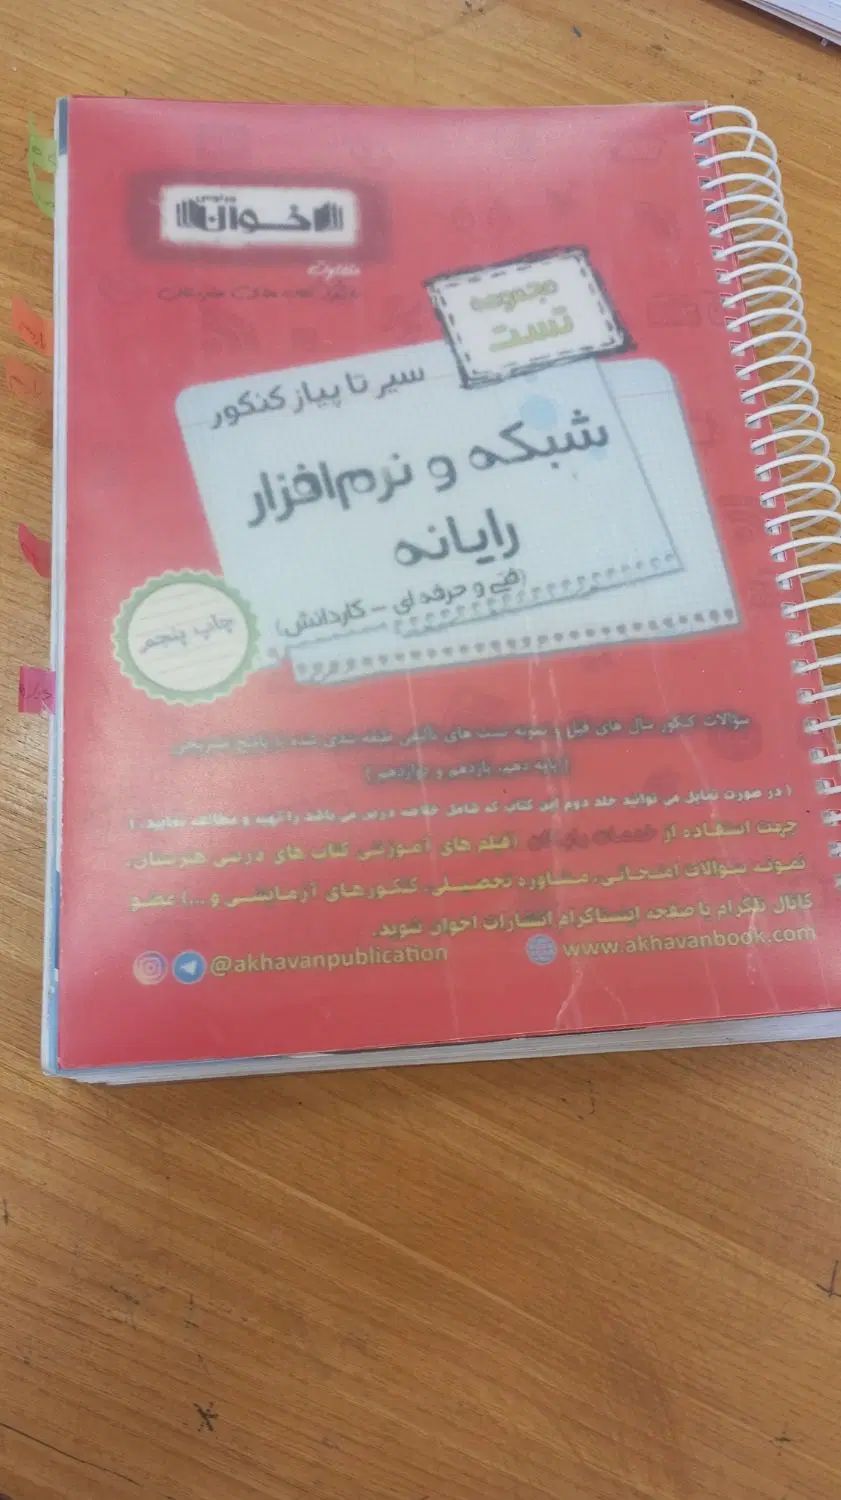 اخوان
متفاوت
مجموعه
تست
سیر تا پیاز کنکور
شبکه و نرم‌افزار
رایانه
(فنی و حرفه ای - کاردانش)
چاپ پنجم
سوالات کنکور سال های قبل و نمونه تست های تألیفی طبقه بندی شده با پاسخ تشریحی
(پایه دهم، یازدهم و دوازدهم)
( در صورت تمایل می توانید جلد دوم این کتاب که شامل خلاصه دروس می باشد را تهیه و مطالعه نمایید. )
جهت استفاده از خدمات رایگان (فیلم های آموزشی کتاب های درسی هنرستان،
نمونه سوالات امتحانی، مشاوره تحصیلی، کنکورهای آزمایشی و ...) عضو
کانال تلگرام یا صفحه اینستاگرام انتشارات اخوان شوید.
@akhavanpublication
www.akhavanbook.com